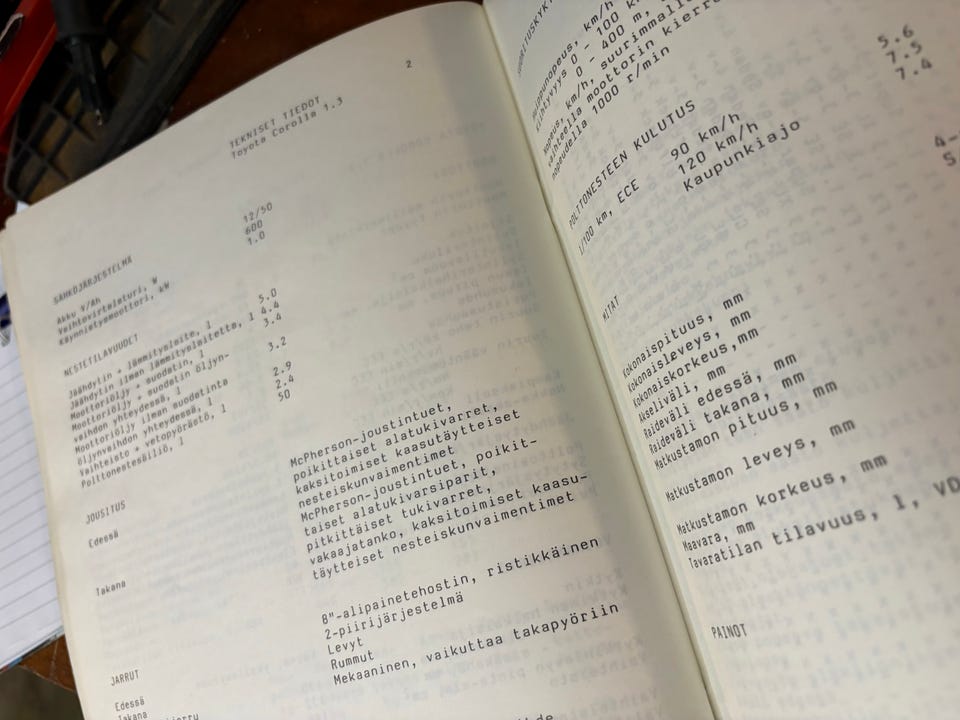 2
TEKNISET TIEDOT
Toyota Corolla 1.3
SÄHKÖJÄRJESTELMÄ
Akku V/Ah 12/50
Vaihtovirtalaturi, W 600
Käynnistysmoottori, kW 1.0
NESTETILAVUUDET
Jäähdytin + lämmityslaite, l 5.0
Jäähdytin ilman lämmityslaitetta, l 4.4
Moottoriöljy + suodatin, l 3.4
Moottoriöljy + suodatin öljyn-
vaihdon yhteydessä, l 3.2
Moottoriöljy ilman suodatinta
öljynvaihdon yhteydessä, l 2.9
Vaihteisto + vetopyörästö, l 2.4
Polttonestesäiliö, l 50
JOUSITUS
Edessä
McPherson-joustintuet,
poikittaiset alatukivarret,
kaksitoimiset kaasutäytteiset
nesteiskunvaimentimet
Takana
McPherson-joustintuet, poikit-
taiset alatukivarsiparit,
pitkittäiset tukivarret,
vakaajatanko, kaksitoimiset kaasu-
täytteiset nesteiskunvaimentimet
JARRUT
8"-alipainetehostin, ristikkäinen
2-piirijärjestelmä
Edessä Levyt
Takana Rummut
Mekaaninen, vaikuttaa takapyöriin
km/h
0 - 100 km
0 - 400 m,
km/h, suurimmalla
vaihteella moottorin kierros-
nopeudella 1000 r/min
POLTTONESTEEN KULUTUS
l/100 km, ECE 90 km/h 5.6
120 km/h 7.5
Kaupunkiajo 7.4
MITAT
Kokonaispituus, mm
Kokonaisleveys, mm
Kokonaiskorkeus,mm
Akseliväli, mm
Raideväli edessä, mm
Raideväli takana, mm
Matkustamon pituus, mm
Matkustamon leveys, mm
Matkustamon korkeus, mm
Maavara, mm
Tavaratilan tilavuus, l, VD
PAINOT